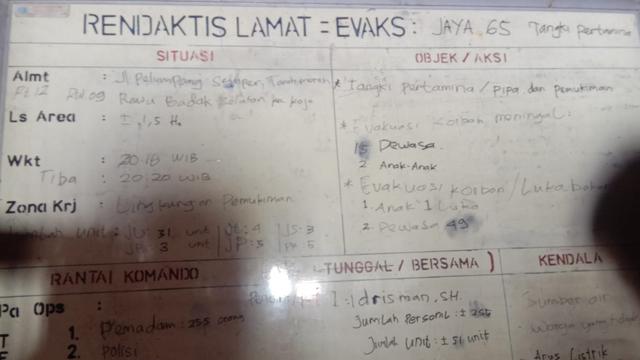 RENDAKTIS LAMAT = EVAKS : JAYA 65 Tangki pertamina
SITUASI
OBJEK / AKSI
Almt : Jl Pelumpang Semper, Tanah merah
Rt 12 Rw 09 Rawa Badak Selatan Kec Koja
Ls Area : ± 1,5 H.
Wkt : 20.18 WIB
Tiba : 20.20 WIB
Zona Krj : Lingkungan Pemukiman
unit : JU : 31 unit JT : 4 JS : 3
JP : 3 unit JP : 5
* Tangki pertamina / pipa dan pemukiman
* Evakuasi korban meningal :
15 Dewasa.
2 Anak-Anak
* Evakuasi korban / Luka bakar
1. Anak" 1 Luka
2. Dewasa 49
RANTAI KOMANDO
TUNGGAL / BERSAMA )
KENDALA
Pa Ops :
1. Pemadam : 255 orang
2. polisi
I : Idrisman, SH.
Jumlah Personil : ± 255
Jumlah unit : ± 51 unit
Sumber air
Warga yang
Arus Listrik